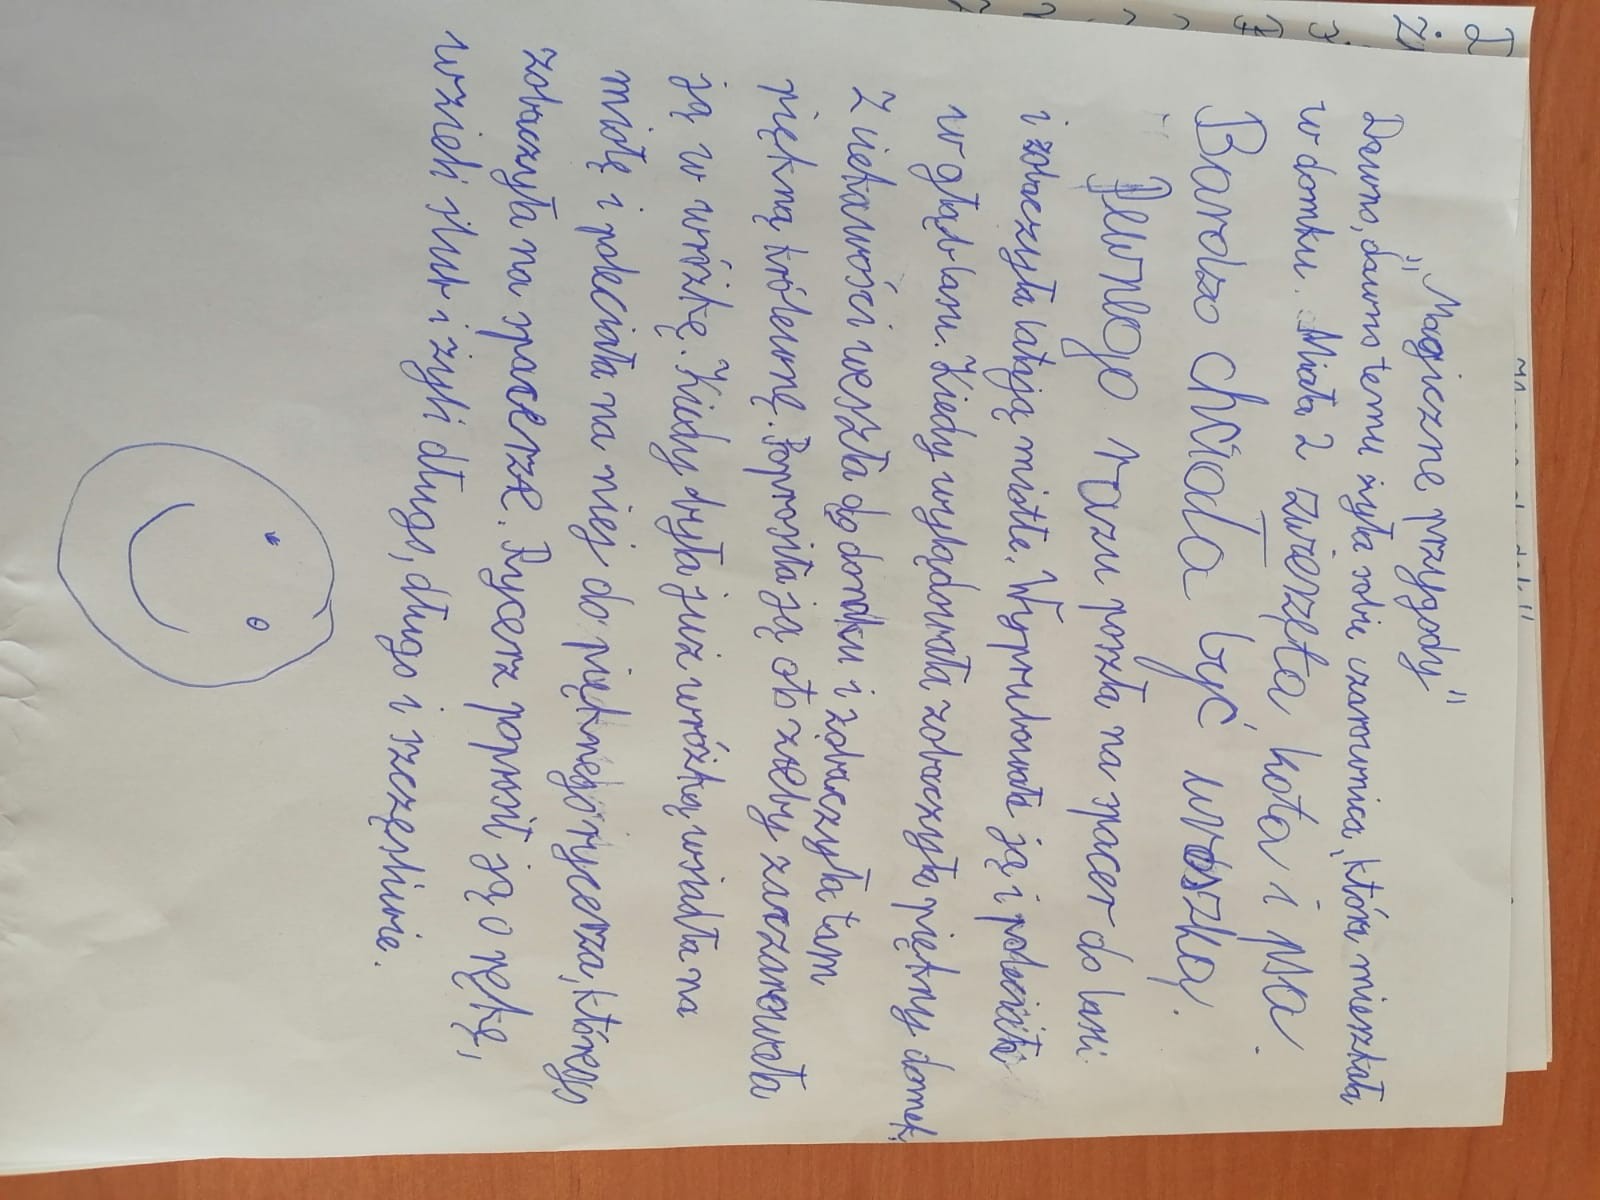 "Magiczne przygody"
Dawno, dawno temu żyła sobie czarownica, która mieszkała
w domku. Miała 2 zwierzęta kota i psa.
Bardzo chciała być wroszką.
Pewnego razu poszła na spacer do lasu
i zobaczyła latają miotłe. Wyprubowała ją i poleciała
w głąb lasu. Kiedy wylądowała zobaczyła piękny domek.
Z ciekawości weszła do domku i zobaczyła tam
piękną królewnę. Poprosiła ją oto żeby zaczarowała
ją w wróżkę. Kiedy była już wróżką wsiadła na
miotłę i poleciała na niej do pięknego rycerza, którego
zobaczyła na spacerze. Rycerz poprosił ją o rękę,
wzieli ślub i żyli długo, długo i szczęśliwie.